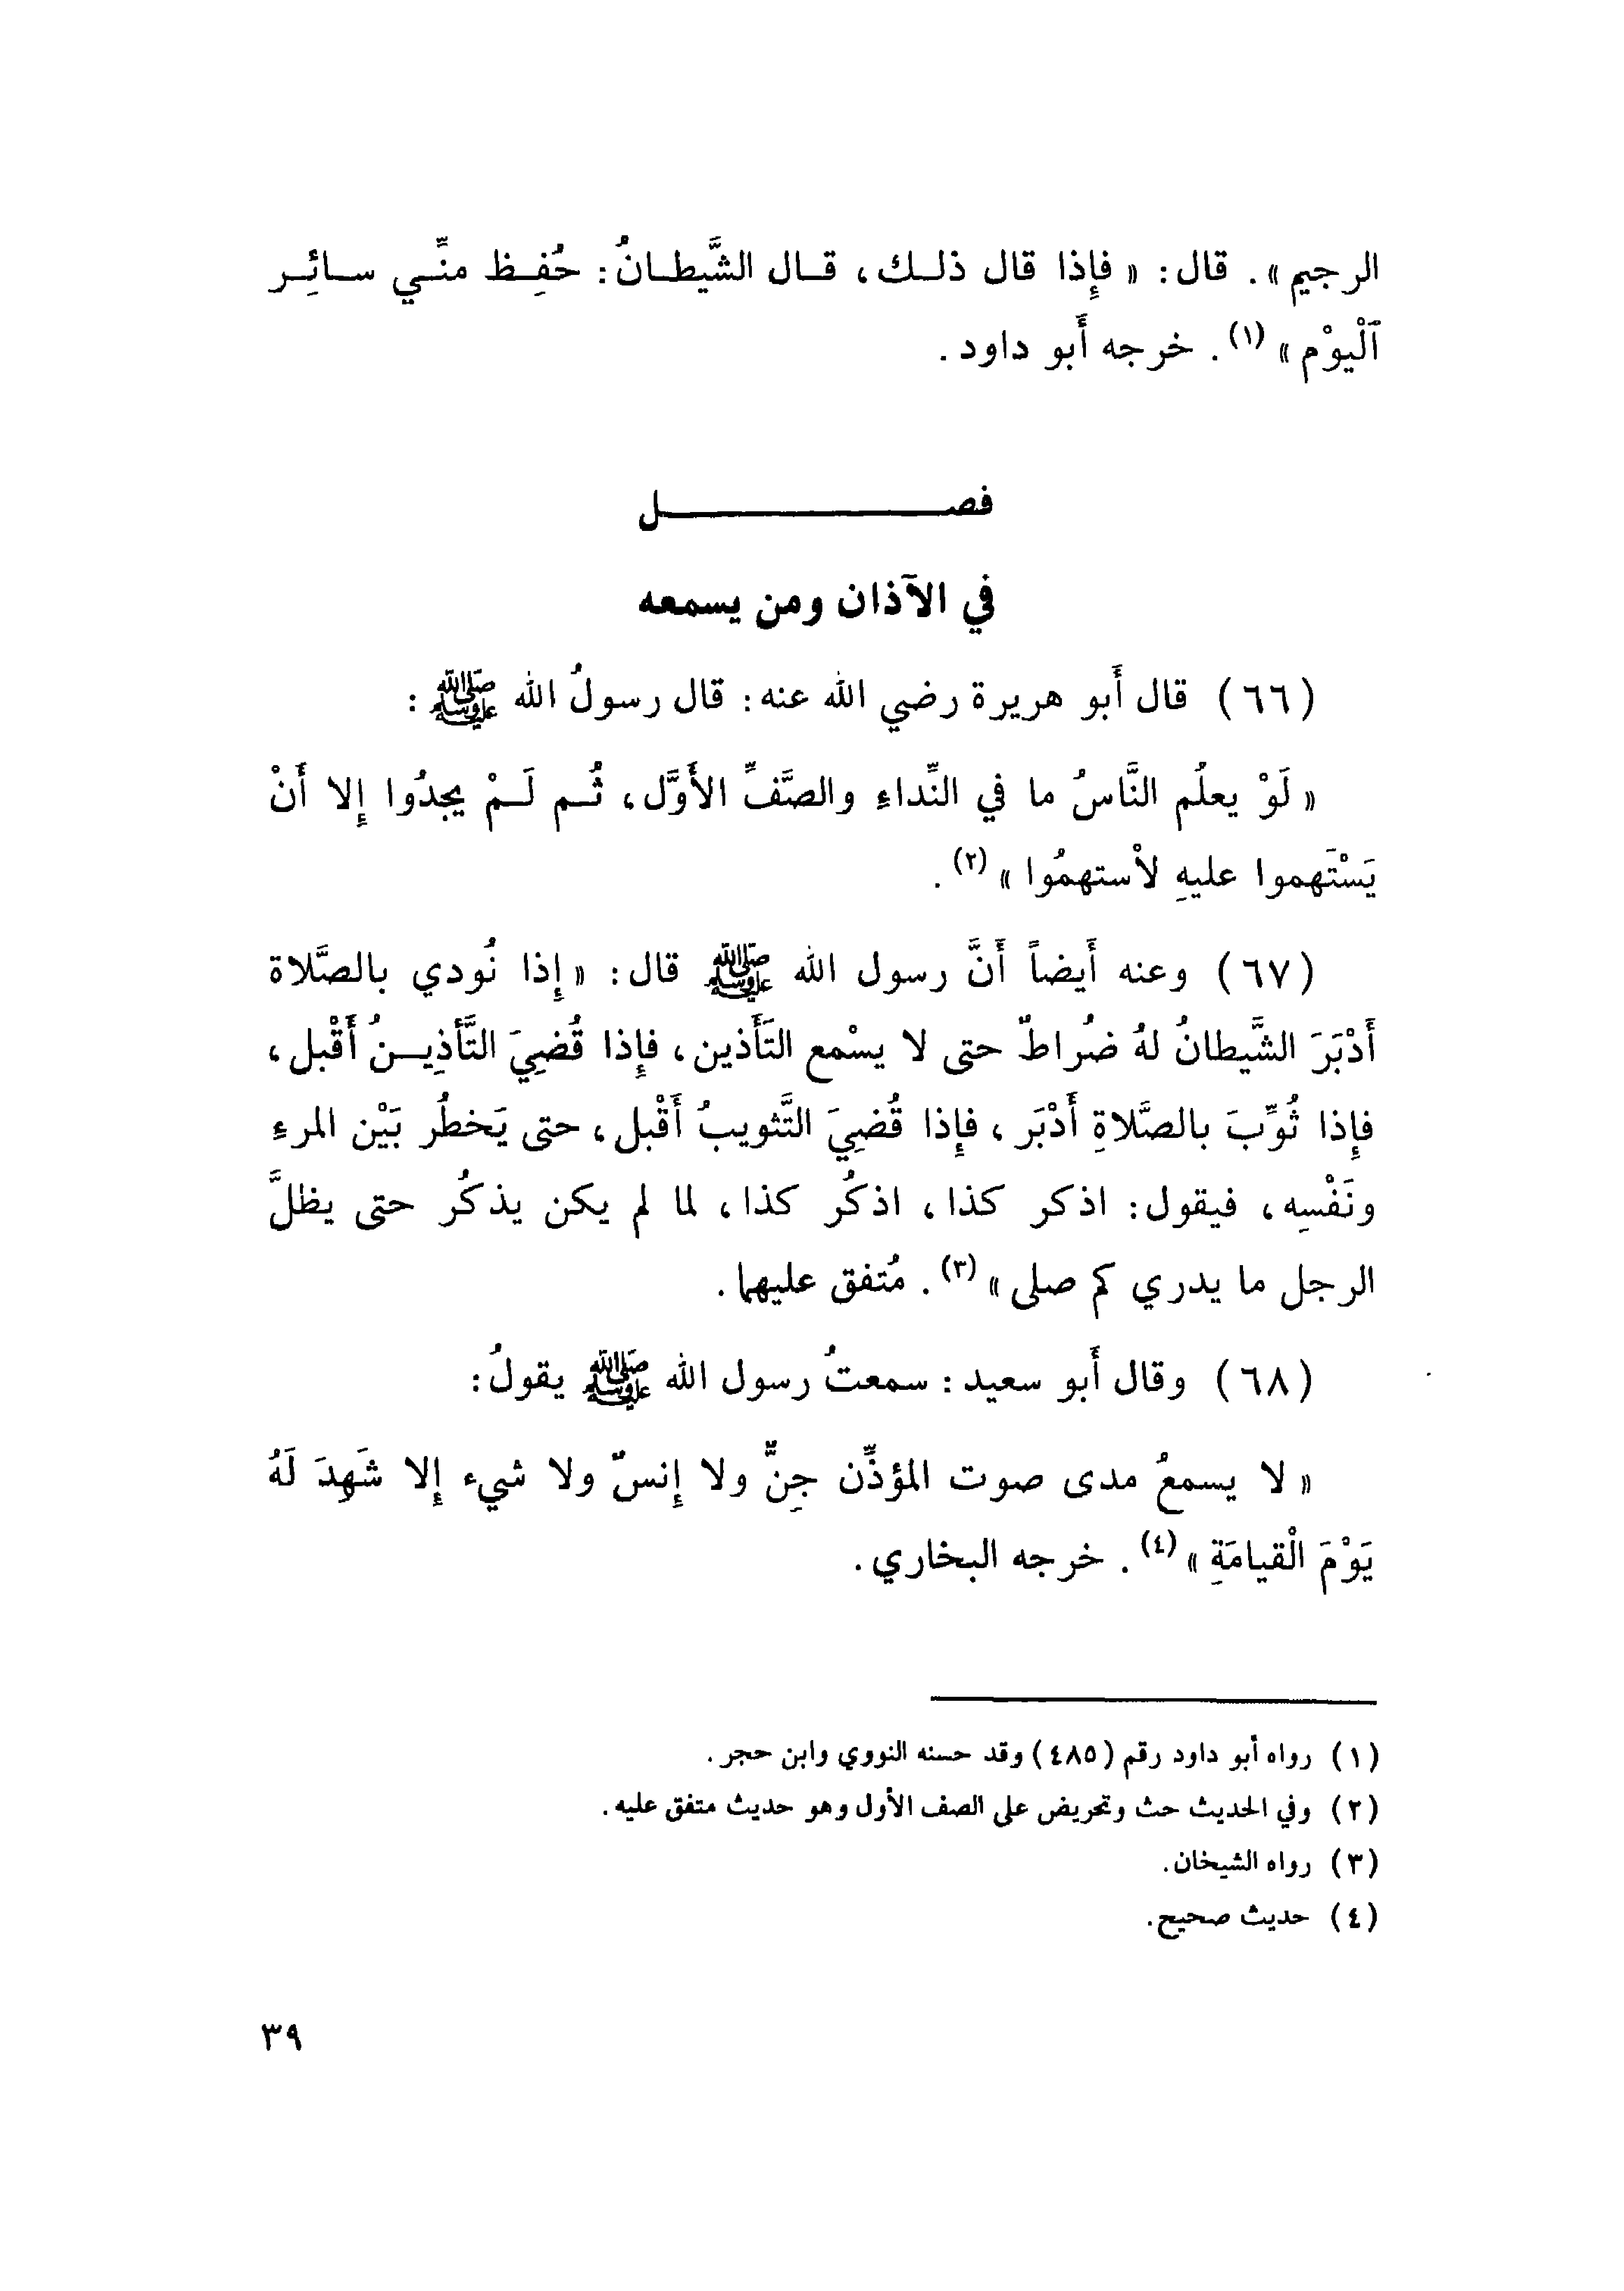 الرجيم». قال: «فإذا قال ذلك، قال الشَّيطانُ: حُفِظ منِّي سائِر
ٱلْيوْم» (١). خرجه أَبو داود.
فصل
في الآذان ومن يسمعه
(٦٦) قال أَبو هريرة رضي الله عنه: قال رسولُ الله ﷺ:
«لَوْ يعلُم النَّاسُ ما في النِّداءِ والصَّفِّ الأَوَّل، ثُم لَمْ يجدُوا إِلا أَنْ
يَسْتَهموا عليهِ لاْستهمُوا» (٢).
(٦٧) وعنه أَيضاً أَنَّ رسول الله ﷺ قال: «إِذا نُودي بالصَّلاة
أَدْبَرَ الشَّيطانُ لهُ ضُراطٌ حتى لا يسْمع التَأَذين، فإِذا قُضِيَ التَّأذِينُ أَقْبل،
فإِذا ثُوِّبَ بالصَّلاةِ أَدْبَر، فإِذا قُضِيَ التَّثويبُ أَقْبل، حتى يَخطُر بَيْن المرءِ
ونَفْسِه، فيقول: اذكر كذا، اذكُر كذا، لما لم يكن يذكُر حتى يظلَّ
الرجل ما يدري كم صلى» (٣). مُتفق عليهما.
(٦٨) وقال أَبو سعيد: سمعتُ رسول الله ﷺ يقولُ:
«لا يسمعُ مدى صوت المؤذِّن جِنٌّ ولا إِنسٌ ولا شيء إِلا شَهِدَ لَهُ
يَوْمَ الْقيامَةِ» (٤). خرجه البخاري.
(١) رواه أبو داود رقم (٤٨٥) وقد حسنه النووي وابن حجر.
(٢) وفي الحديث حث وتحريض على الصف الأول وهو حديث متفق عليه.
(٣) رواه الشيخان.
(٤) حديث صحيح.
٣٩